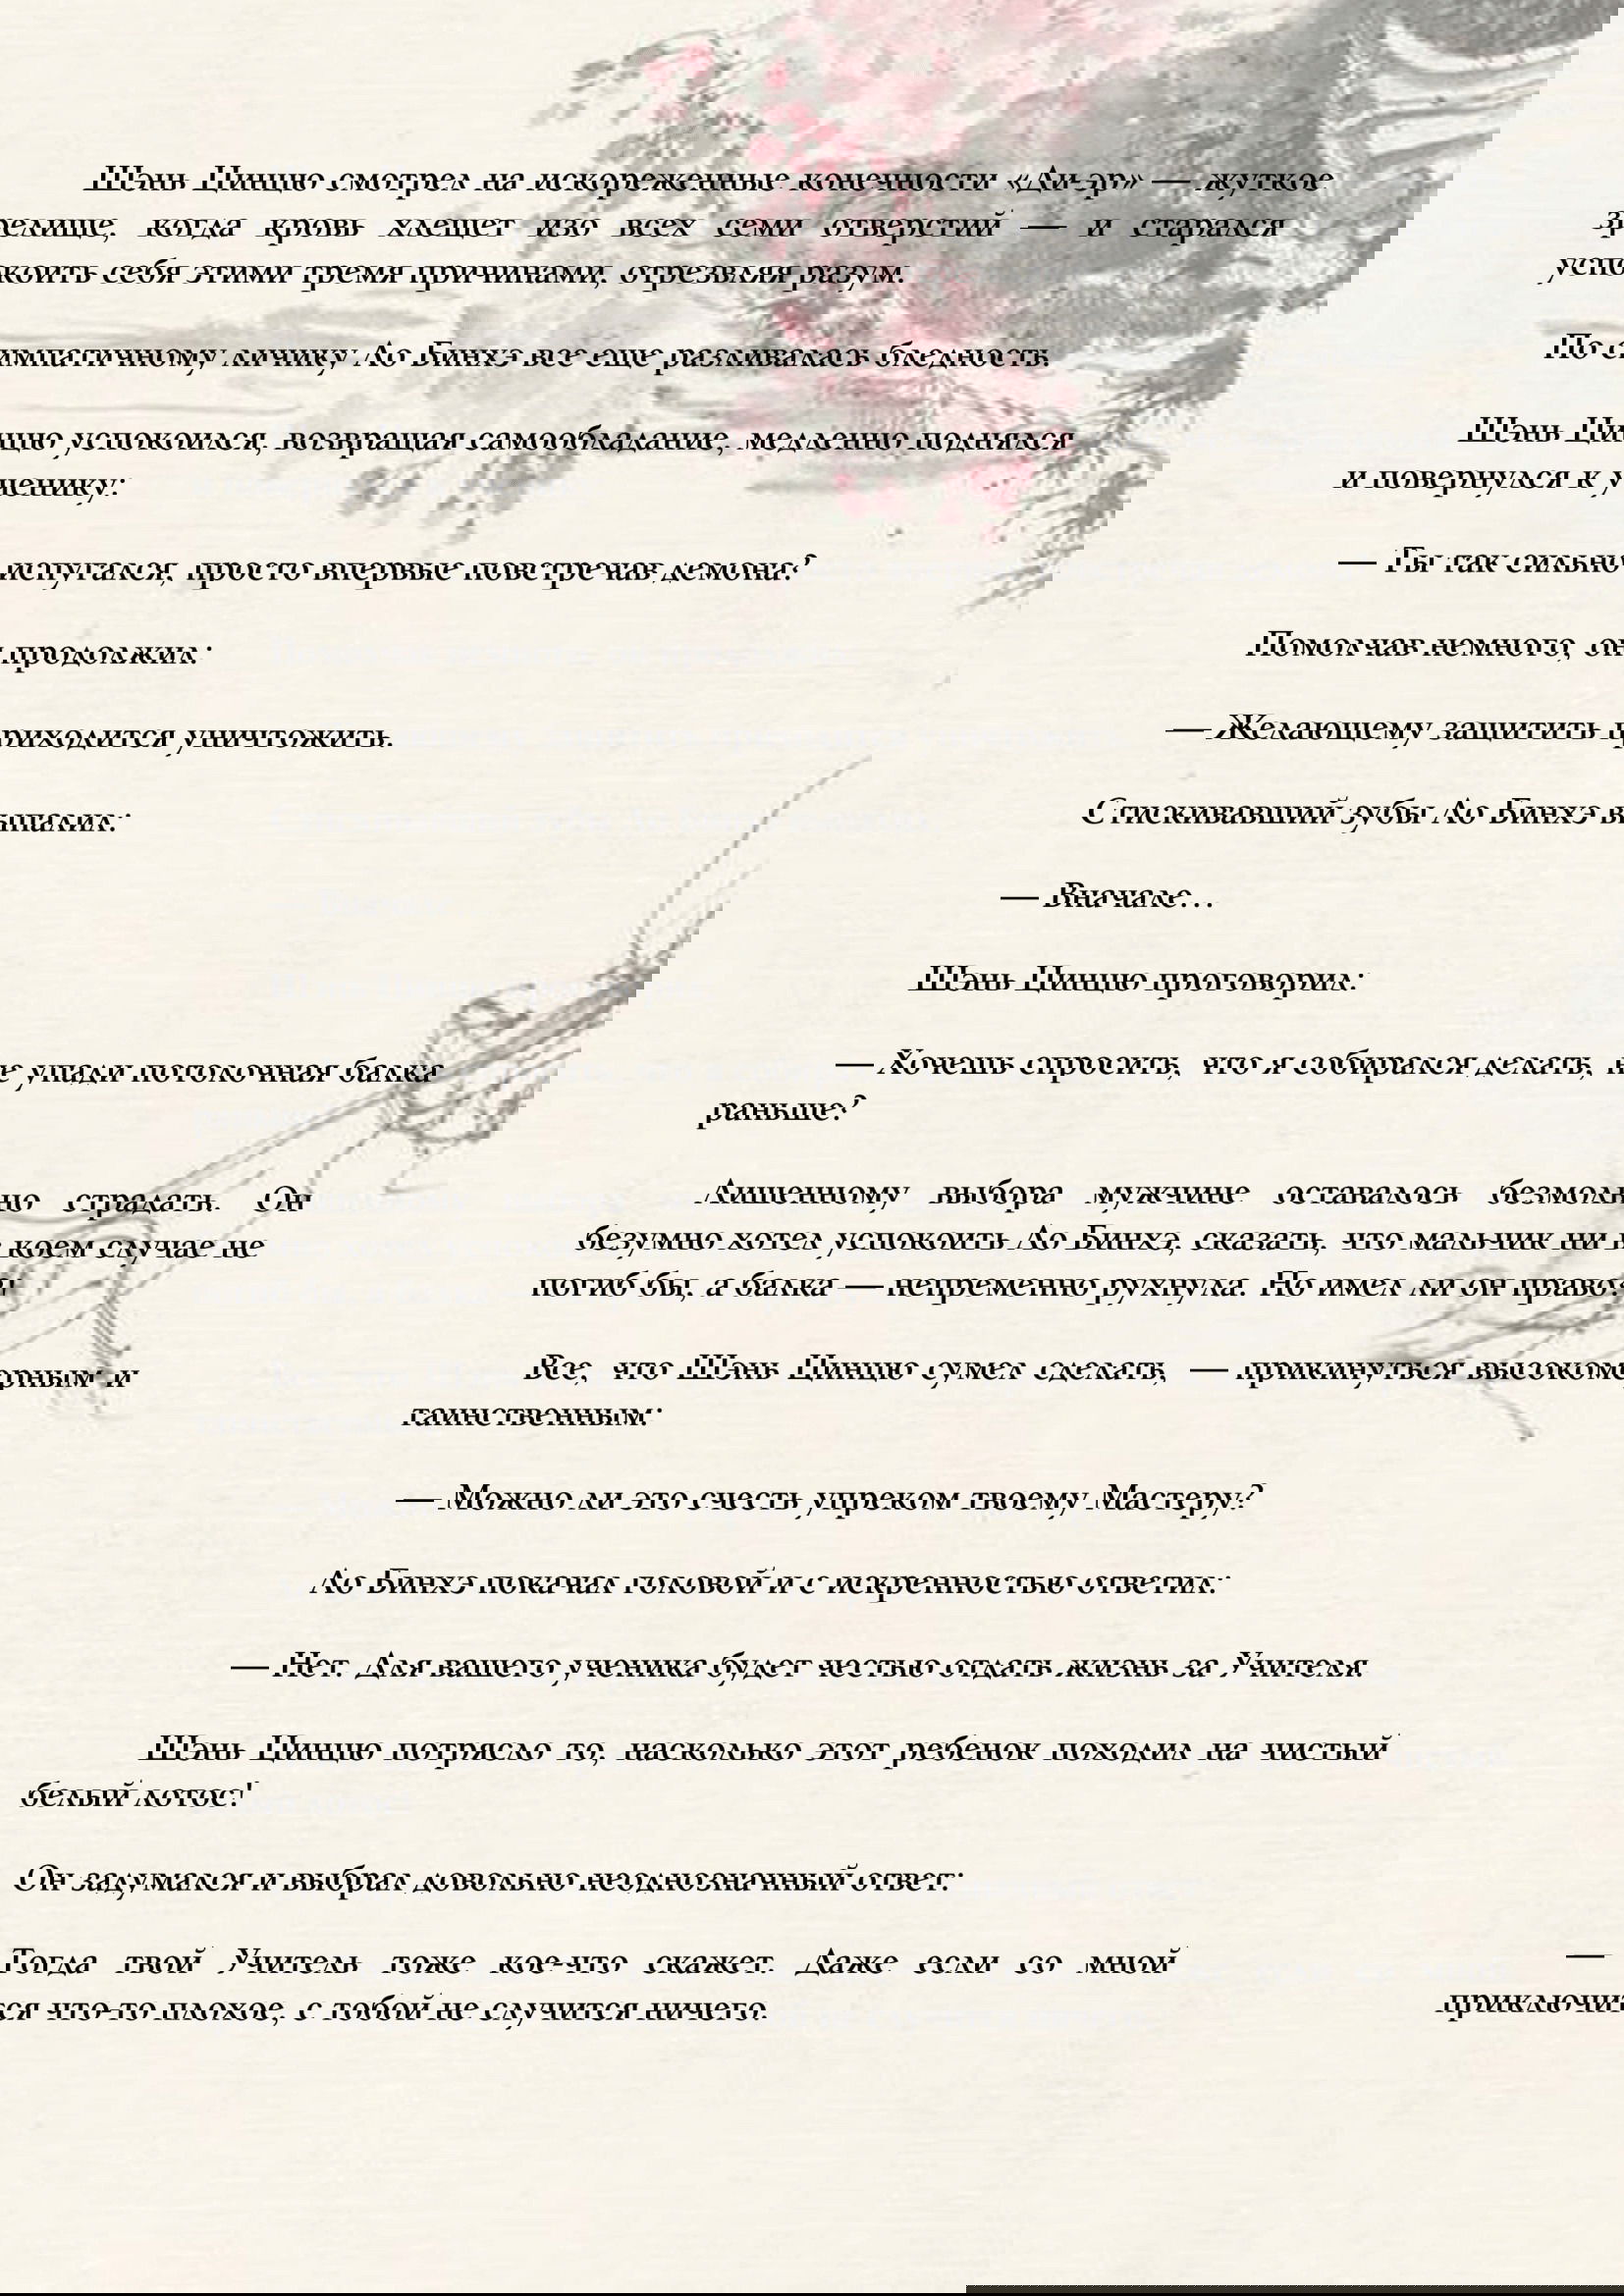 Шэнь Цинцю смотрел на искореженные конечности «Ди-эр» — жуткое
зрелище, когда кровь хлещет изо всех семи отверстий — и старался
успокоить себя этими тремя причинами, отрезвляя разум.
По симпатичному личику Ло Бинхэ все еще разливалась бледность.
Шэнь Цинцю успокоился, возвращая самообладание, медленно поднялся
и повернулся к ученику:
— Ты так сильно испугался, просто впервые повстречав демона?
Помолчав немного, он продолжил:
— Желающему защитить приходится уничтожить.
Стискивавший зубы Ло Бинхэ выпалил:
— Вначале…
Шэнь Цинцю проговорил:
— Хочешь спросить, что я собирался делать, не упади потолочная балка
раньше?
Лишенному выбора мужчине оставалось безмолвно страдать. Он
безумно хотел успокоить Ло Бинхэ, сказать, что мальчик ни в коем случае не
погиб бы, а балка — непременно рухнула. Но имел ли он право?!
Все, что Шэнь Цинцю сумел сделать, — прикинуться высокомерным и
таинственным:
— Можно ли это счесть упреком твоему Мастеру?
Ло Бинхэ покачал головой и с искренностью ответил:
— Нет. Для вашего ученика будет честью отдать жизнь за Учителя.
Шэнь Цинцю потрясло то, насколько этот ребенок походил на чистый
белый лотос!
Он задумался и выбрал довольно неоднозначный ответ:
— Тогда твой Учитель тоже кое-что скажет. Даже если со мной
приключится что-то плохое, с тобой не случится ничего.